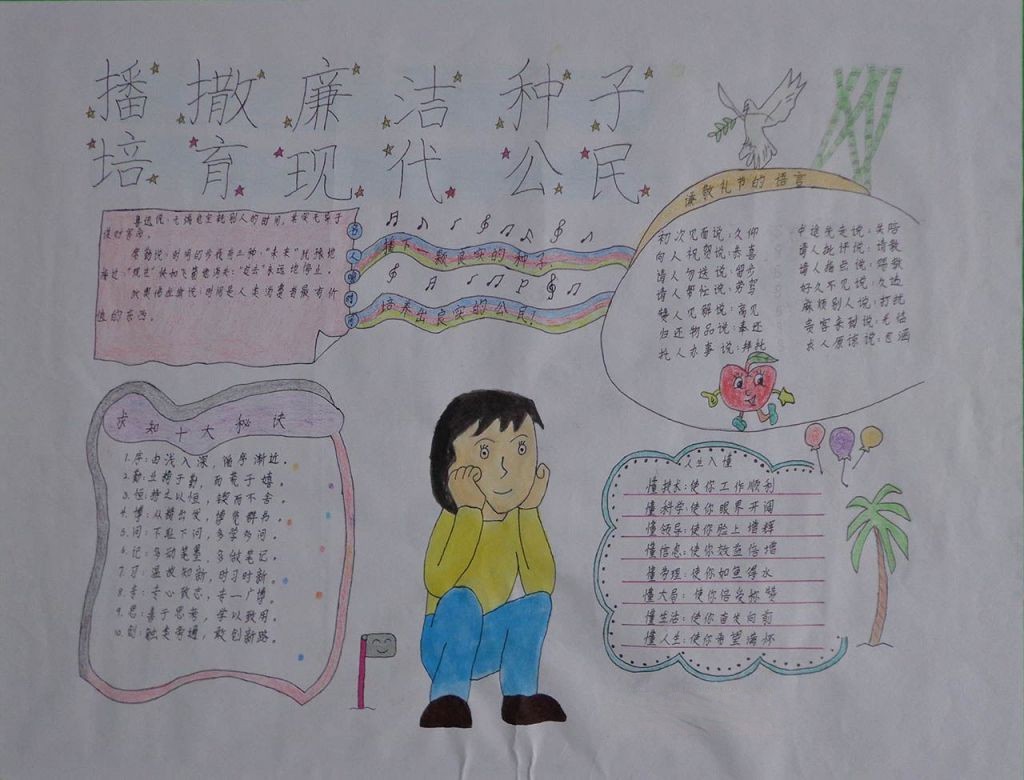 播撒廉洁种子
培育现代公民
鲁迅说：无端地空耗别人的时间，其实无异于
谋财害命。
席勒说：时间的步伐有三种：“未来”姗姗地
来迟；“现在”像箭一般飞逝；“过去”永远地静止。
时间是人类消费者最有价
值的东西。
名人
播下一颗良实的种子，
培养出良实的公民！
谦敬礼节的语言
初次见面说：久仰
向人祝贺说：恭喜
请人勿送说：留步
请人帮忙说：劳驾
赞人见解说：高见
归还物品说：奉还
托人办事说：拜托
中途先走说：失陪
请人批评说：请教
请人指点说：赐教
好久不见说：久违
麻烦别人说：打扰
贵客来到说：光临
求人原谅说：包涵
求知十大秘诀
1.序：由浅入深，循序渐近。
2.勤：业精于勤，而荒于嬉。
3.恒：持之以恒，锲而不舍。
4.博：从精出发，博览群书。
5.问：不耻下问，多学多问。
6.记：多动笔墨，多做笔记。
7.习：温故知新，时习时新。
8.专：专心致志，专一广博。
9.思：善于思考，学以致用。
10.创：触类旁通，敢创新路。
人生八懂
懂技术：使你工作顺利
懂科学：使你眼界开阔
懂领导：使你脸上增辉
懂信息：使你效益倍增
懂管理：使你如鱼得水
懂大局：使你倍受称赞
懂生活：使你奋发向前
懂人生：使你希望满怀